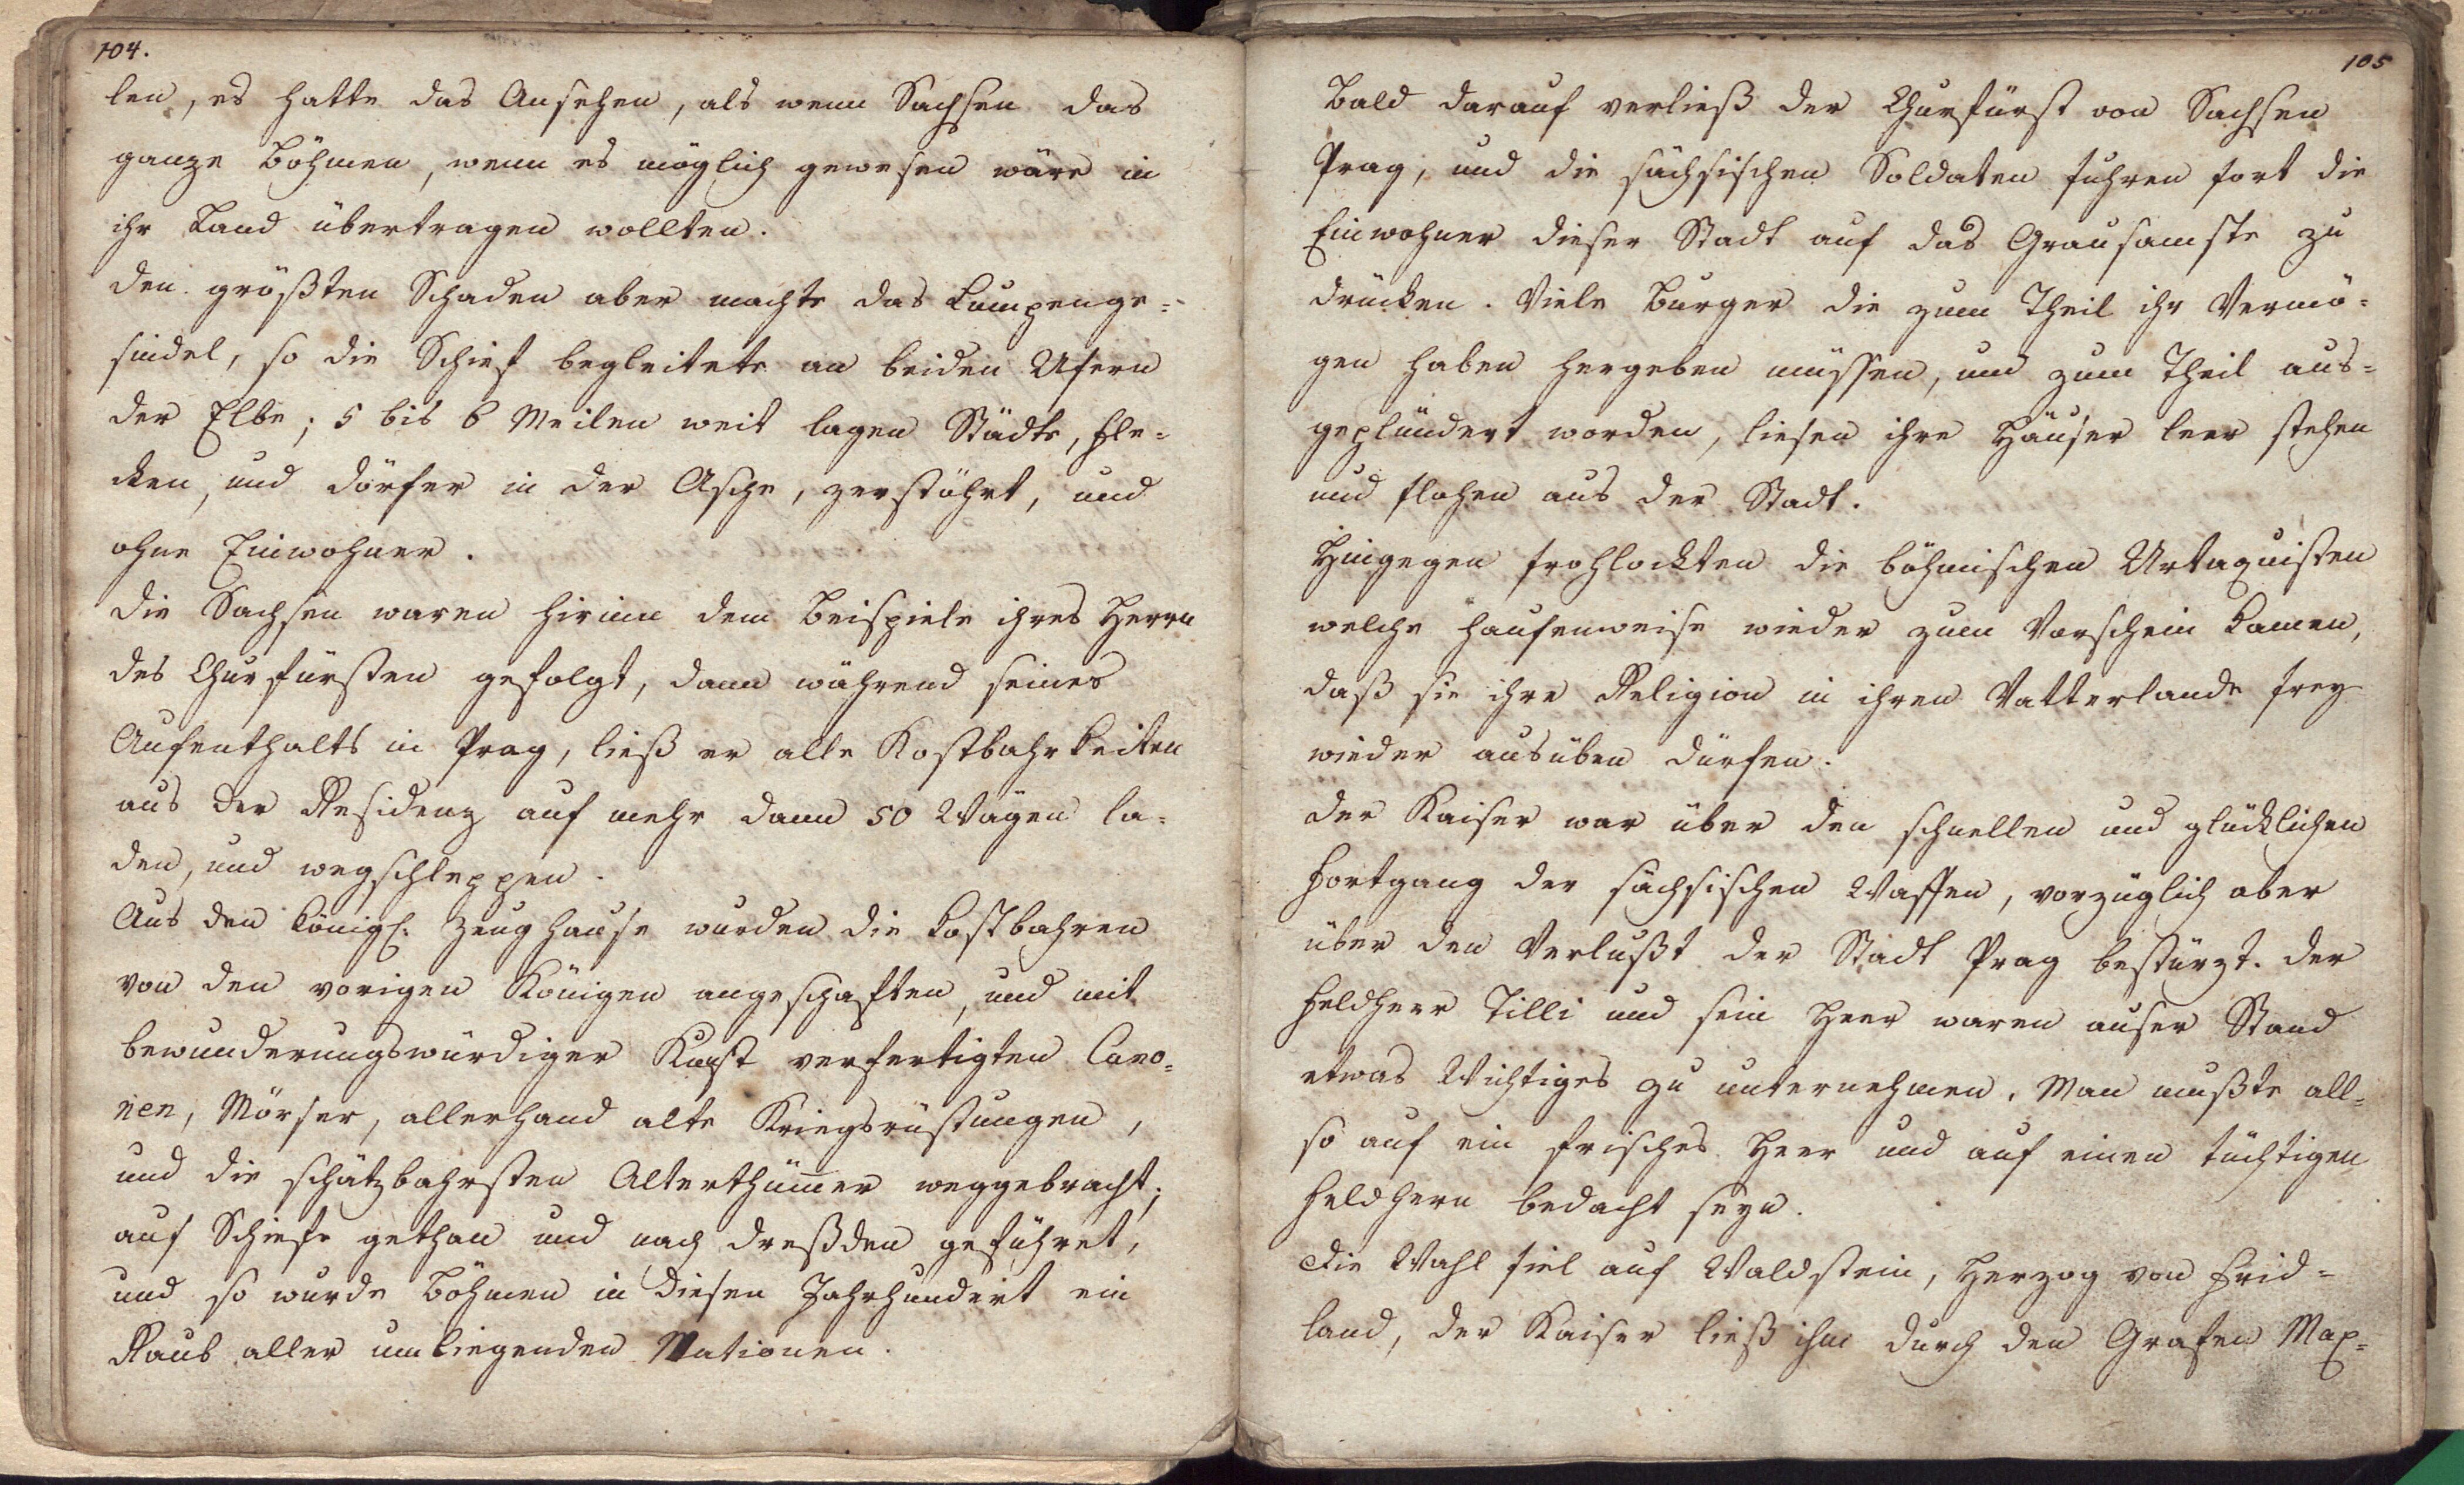 104.
len, es hatte das Ansehen, als wenn Sachsen das
ganze Böhmen, wenn es möglich gewesen wäre in
ihr Land übertragen wollten.
den größten Schaden aber machte das Lumpenge=
sindel, so die Schief begleitete an beiden Ufern
der Elbe; 5 bis 6 Meilen weit lagen Städte, Fle=
cken, und Dörfer in der Asche, zerstöhrt, und
ohne Einwohner.
die Sachsen waren hirinn dem Beispiele ihres Herrn
des Churfürsten gefolgt, dann während seines
Aufenthalts in Prag, ließ er alle Kostbahrkeiten
aus der Residenz auf mehr dann 50 Wägen la=
den, und wegschleppen.
Aus den königl. Zeughause wurden die kostbahren
von den vorigen Königen angeschaften, und mit
bewunderungswürdiger Kunst verfertigten Cano=
nen, Mörser, allerhand alte Kriegsrüstungen,
und die schätzbahrsten Alterthüm̅er weggebracht;
auf Schiefe gethan und nach Dreßden geführet,
und so wurde Böhmen in diesen Jahrhundert ein
Raub aller umliegenden Nationen.
105
Bald darauf verließ der Churfürst von Sachsen
Prag, und die sächsischen Soldaten fuhren fort die
Einwohner dieser Stadt auf das Grausamste zu
drücken. Viele Burger die zum Theil ihr Vermö=
gen haben hergeben müssen, und zum Theil aus=
geplündert worden, liesen ihre Häuser leer stehen
und flohen aus der Stadt.
Hingegen frohlockten die böhmischen Urtaquisten
welche haufenweise wieder zum Vorschein kamen,
daß sie ihre Religion in ihren Vatterlande frey
wieder ausüben dürfen.
der Kaiser war über den schnellen und glücklichen
Fortgang der sächsischen Waffen, vorzüglich aber
über den Verlußt der Stadt Prag bestürzt. der
Feldherr Tilli und sein Heer waren auser Stand
etwas Wichtiges zu unternehmen. Man mußte all=
so auf ein frisches Heer und auf einen tüchtigen
Feldhern bedacht seyn.
die Wahl fiel auf Waldstein, Herzog von Frid=
land, der Kaiser ließ ihm durch den Grafen Max=